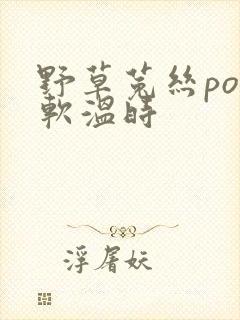 野草菟絲po
軟溫時
浮屠妖